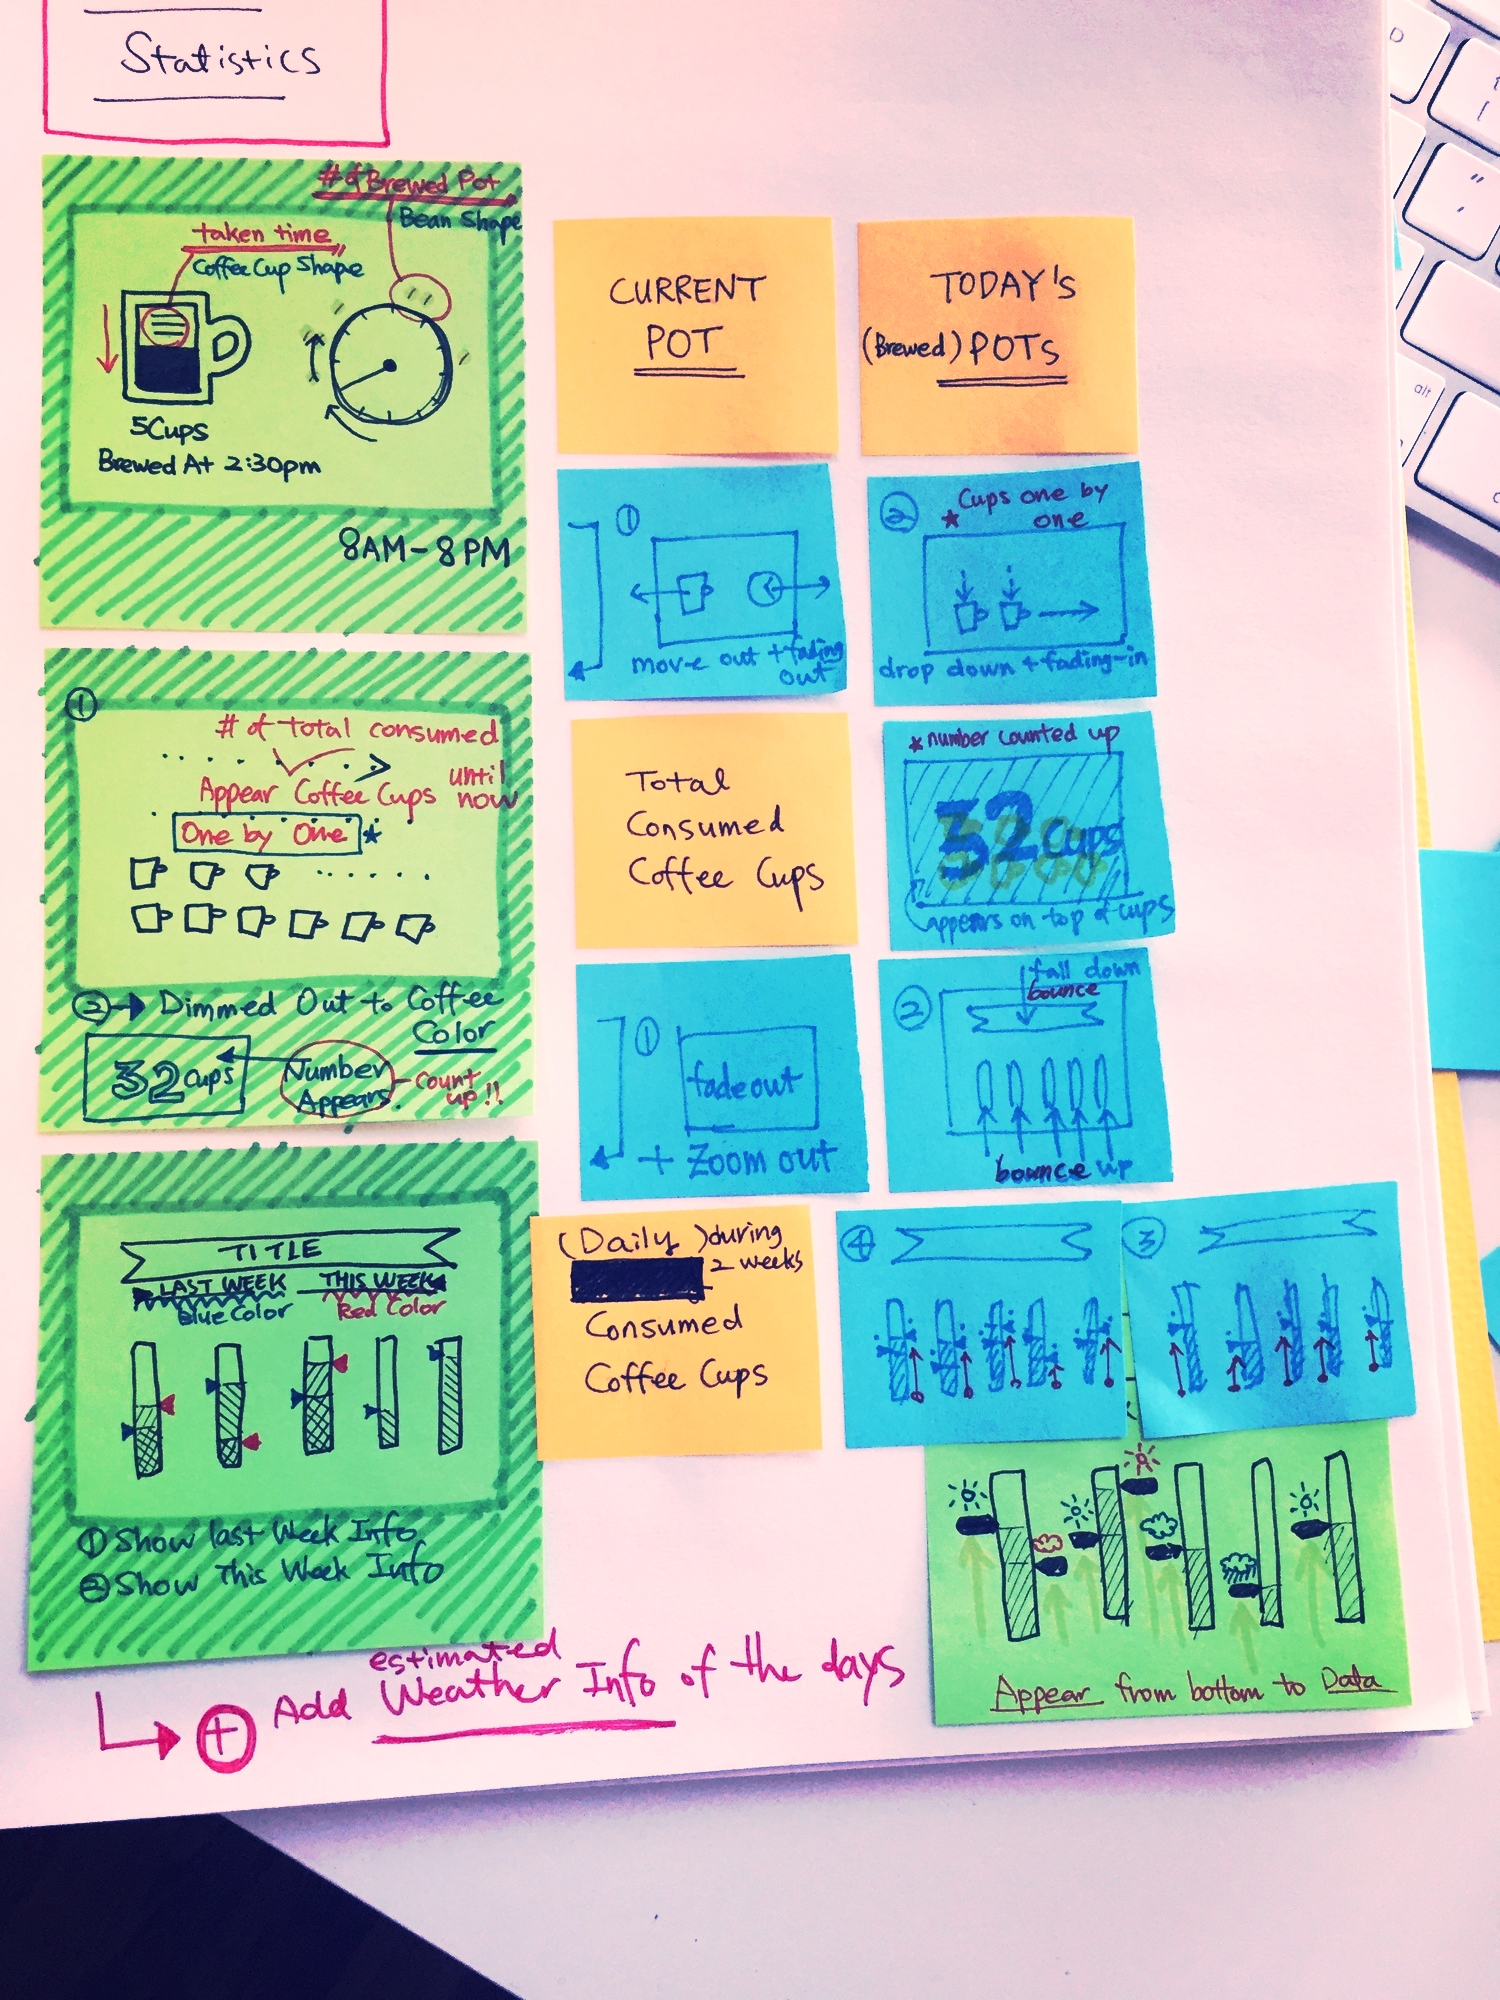 Statistics
# of Brewed Pot
Bean Shape
taken time
Coffee Cup Shape
5Cups
Brewed At 2:30pm
8AM-8PM
CURRENT
POT
TODAY's
(Brewed) POTs
①
move out + fading
out
②
* Cups one by
one
drop down + fading-in
①
# of Total consumed
until
now
Appear Coffee Cups
One by One *
② → Dimmed Out to Coffee
Color
32 cups
Number
Appears.
count
up!!
Total
Consumed
Coffee Cups
* number counted up
32 Cups
appears on top of cups
①
fade out
+ Zoom out
②
fall down
bounce
bounce up
TITLE
LAST WEEK
THIS WEEK
Blue Color
Red Color
① Show last Week Info
② Show This Week Info
(Daily) during
2 weeks
Consumed
Coffee Cups
④
③
Appear from bottom to Data
estimated
+ Add Weather Info of the days
D
[
"
,
alt